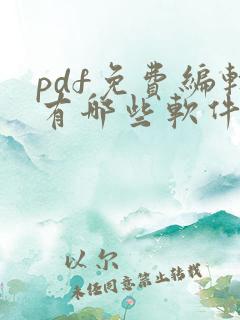 pdf免費編輯
有哪些軟件
以尔
未经同意禁止转载